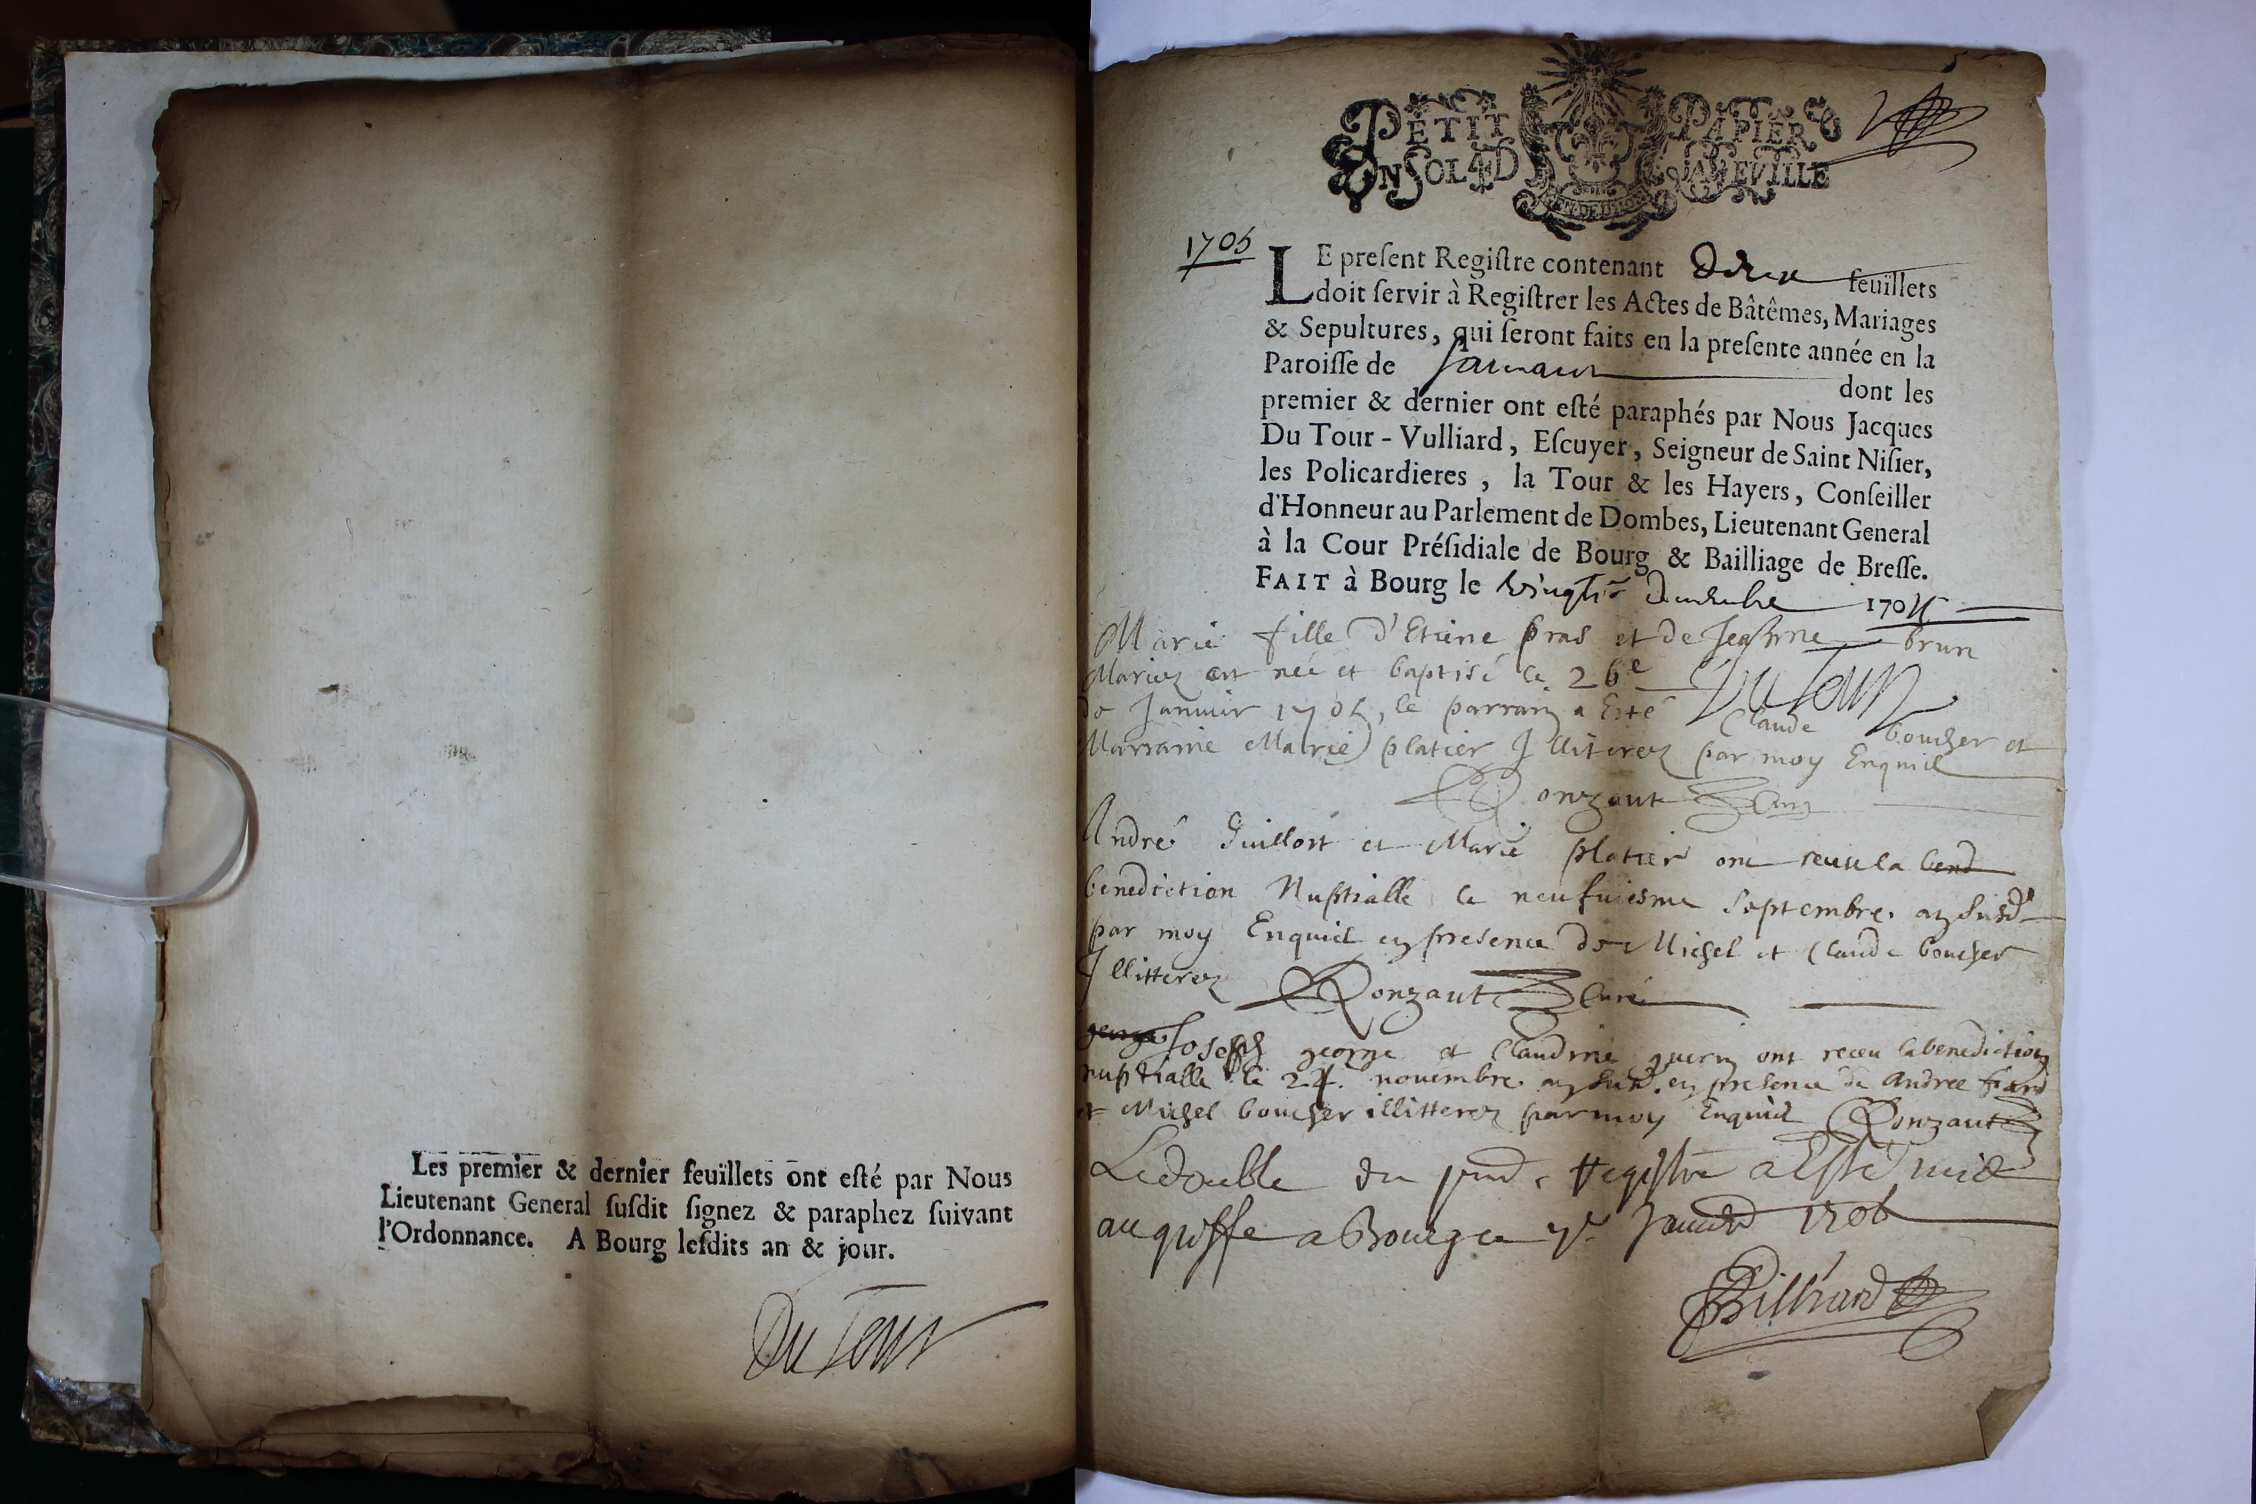 Les premier & dernier feuïllets ont esté par Nous
Lieutenant General susdit signez & paraphez suivant
l'Ordonnance. A Bourg lesdits an & jour.
Du Tour
PETIT PAPIER
EN SOL 4 D LA FEVILLE
1705
LE present Registre contenant Deux feuïllets
doit servir à Registrer les Actes de Bâtêmes, Mariages
& Sepultures, qui seront faits en la presente année en la
Paroisse de dont les
premier & dernier ont esté paraphés par Nous Jacques
Du Tour-Vulliard, Escuyer, Seigneur de Saint Nisier,
les Policardieres, la Tour & les Hayers, Conseiller
d'Honneur au Parlement de Dombes, Lieutenant General
à la Cour Présidiale de Bourg & Bailliage de Bresse.
FAIT à Bourg le decembre 170
Marie fille d'Etiene pras et de Jeanne brun
Mariez est neé et baptisé le 26e
de Janvier 1705, le parrain a Esté Claude boucher et
Du Tour
Marraine Marie platier Illiterez par moy Enquis
Ronzaut Curé
André Guillost et Marie platier ont receu la bend
benediction Nuptialle le neufviesme septembre. an susd
par moy Enquis en presence de Michel et Claude boucher
Illitterez Ronzaut Curé
george Joseph george et Claudine guerin ont receu la benediction
nuptialle le 24. novembre an susd. en presence de andree
et Michel boucher illitterez par moy Enquis Ronzaut
Le double du pnt Registre a Esté mis
au greffe a Bourg ce Janvier 1706
Billiard